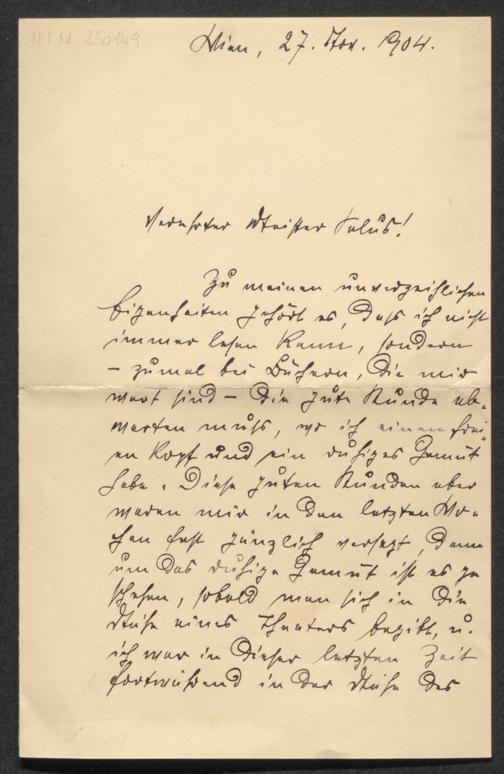 H.I.N. 250149
Wien, 27. Nov. 1904.
Verehrter Meister Salus!
Zu meinen unverzeihlichen
Eigenheiten gehört es, daß ich nicht
immer lesen kann, sondern
– zumal bei Büchern, die mir
wert sind – die gute Stunde ab-
warten muß, wo ich einen frei-
en Kopf und ein ruhiges Gemüt
habe. Diese guten Stunden aber
waren mir in den letzten Wo-
chen fast gänzlich versagt, denn
um das ruhige Gemüt ist es ge
schehen, sobald man sich in die
Nähe eines Theaters begibt, u.
ich war in dieser letzten Zeit
fortwährend in der Nähe des